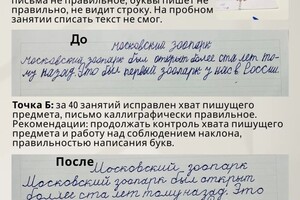 письма не правильное, буквы пишет не
правильно, не видит строку. На пробном
занятии списать текст не смог.
До
московский зоопарк
московский зоопарк был открыт более ста лет то-
му назад. Это был первый зоопарк у нас в России.
Точка Б: за 40 занятий исправлен хват пишущего
предмета, письмо каллиграфически правильное.
Рекомендации: продолжать контроль хвата пишущего
предмета и работу над соблюдением наклона,
правильностью написания букв.
После
Московский зоопарк
Московский зоопарк был открыт
более ста лет тому назад. Это